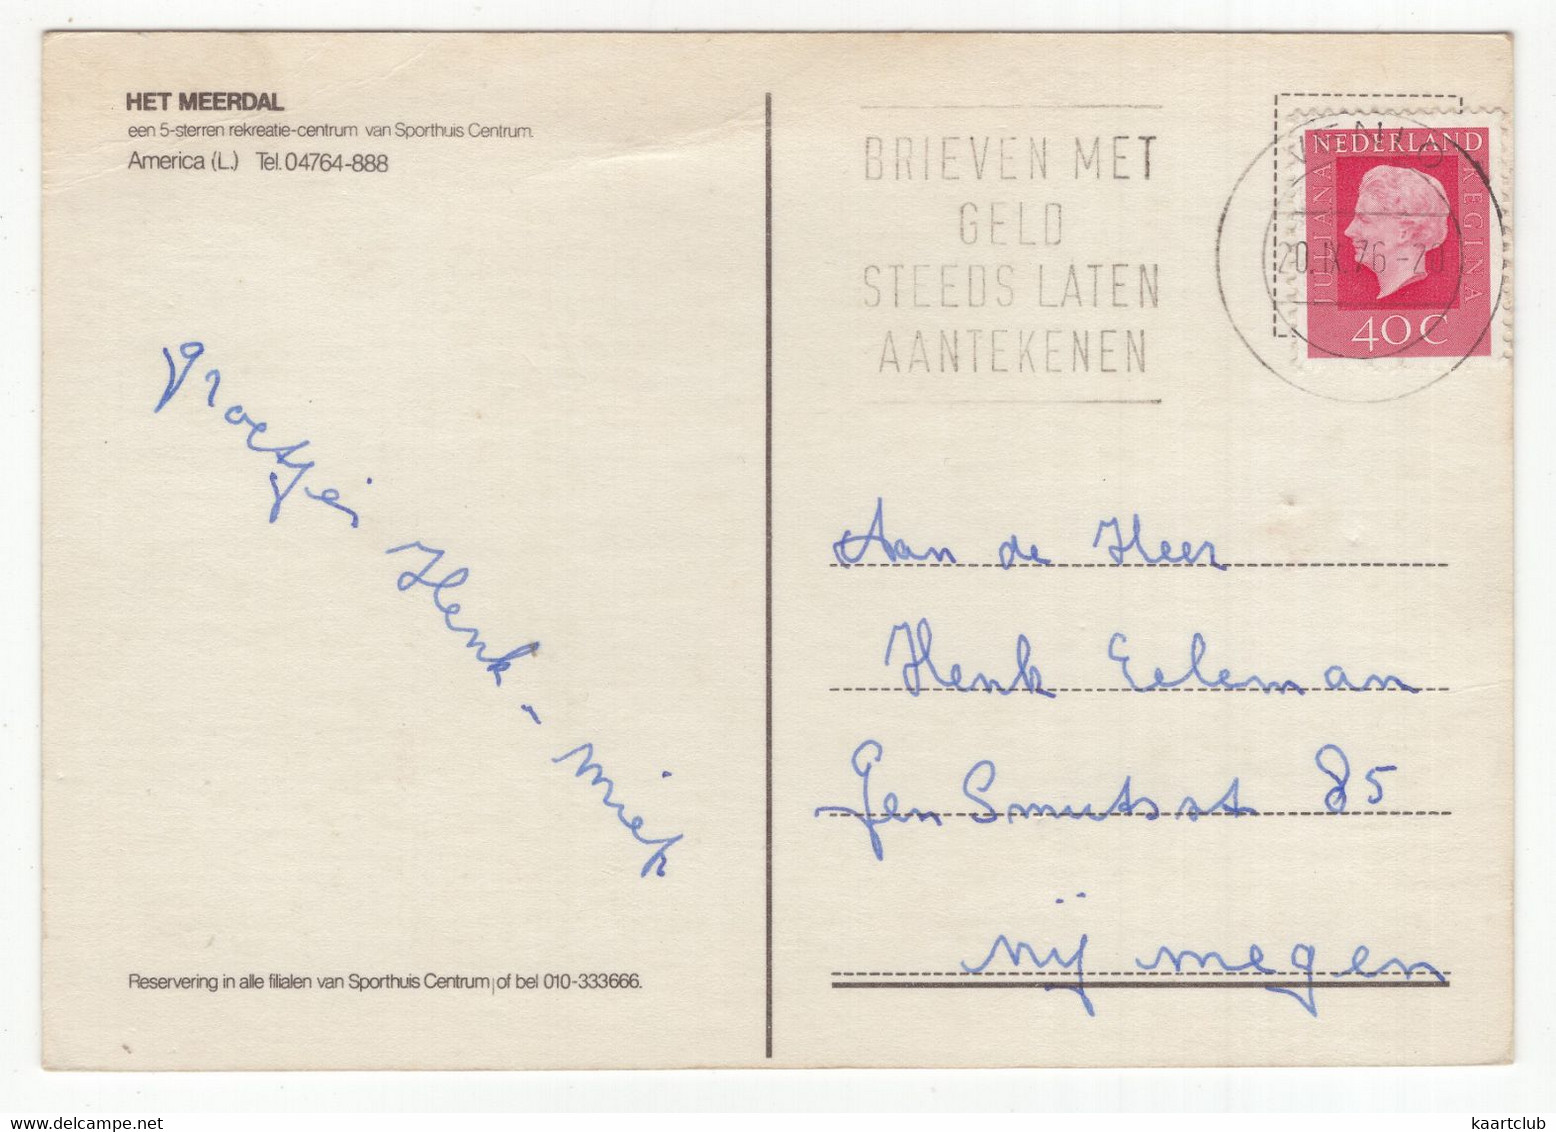 HET MEERDAL
een 5-sterren rekreatie-centrum van Sporthuis Centrum.
America (L.) Tel. 04764-888
BRIEVEN MET
GELD
STEEDS LATEN
AANTEKENEN
VENLO
20.IX.76-20
NEDERLAND
JULIANA
REGINA
40C
groetjes Henk - Miep
Aan de Heer
Henk Eeleman
Gen Smutsst 85
Nijmegen
Reservering in alle filialen van Sporthuis Centrum of bel 010-333666.
www.delcampe.net
kaartclub